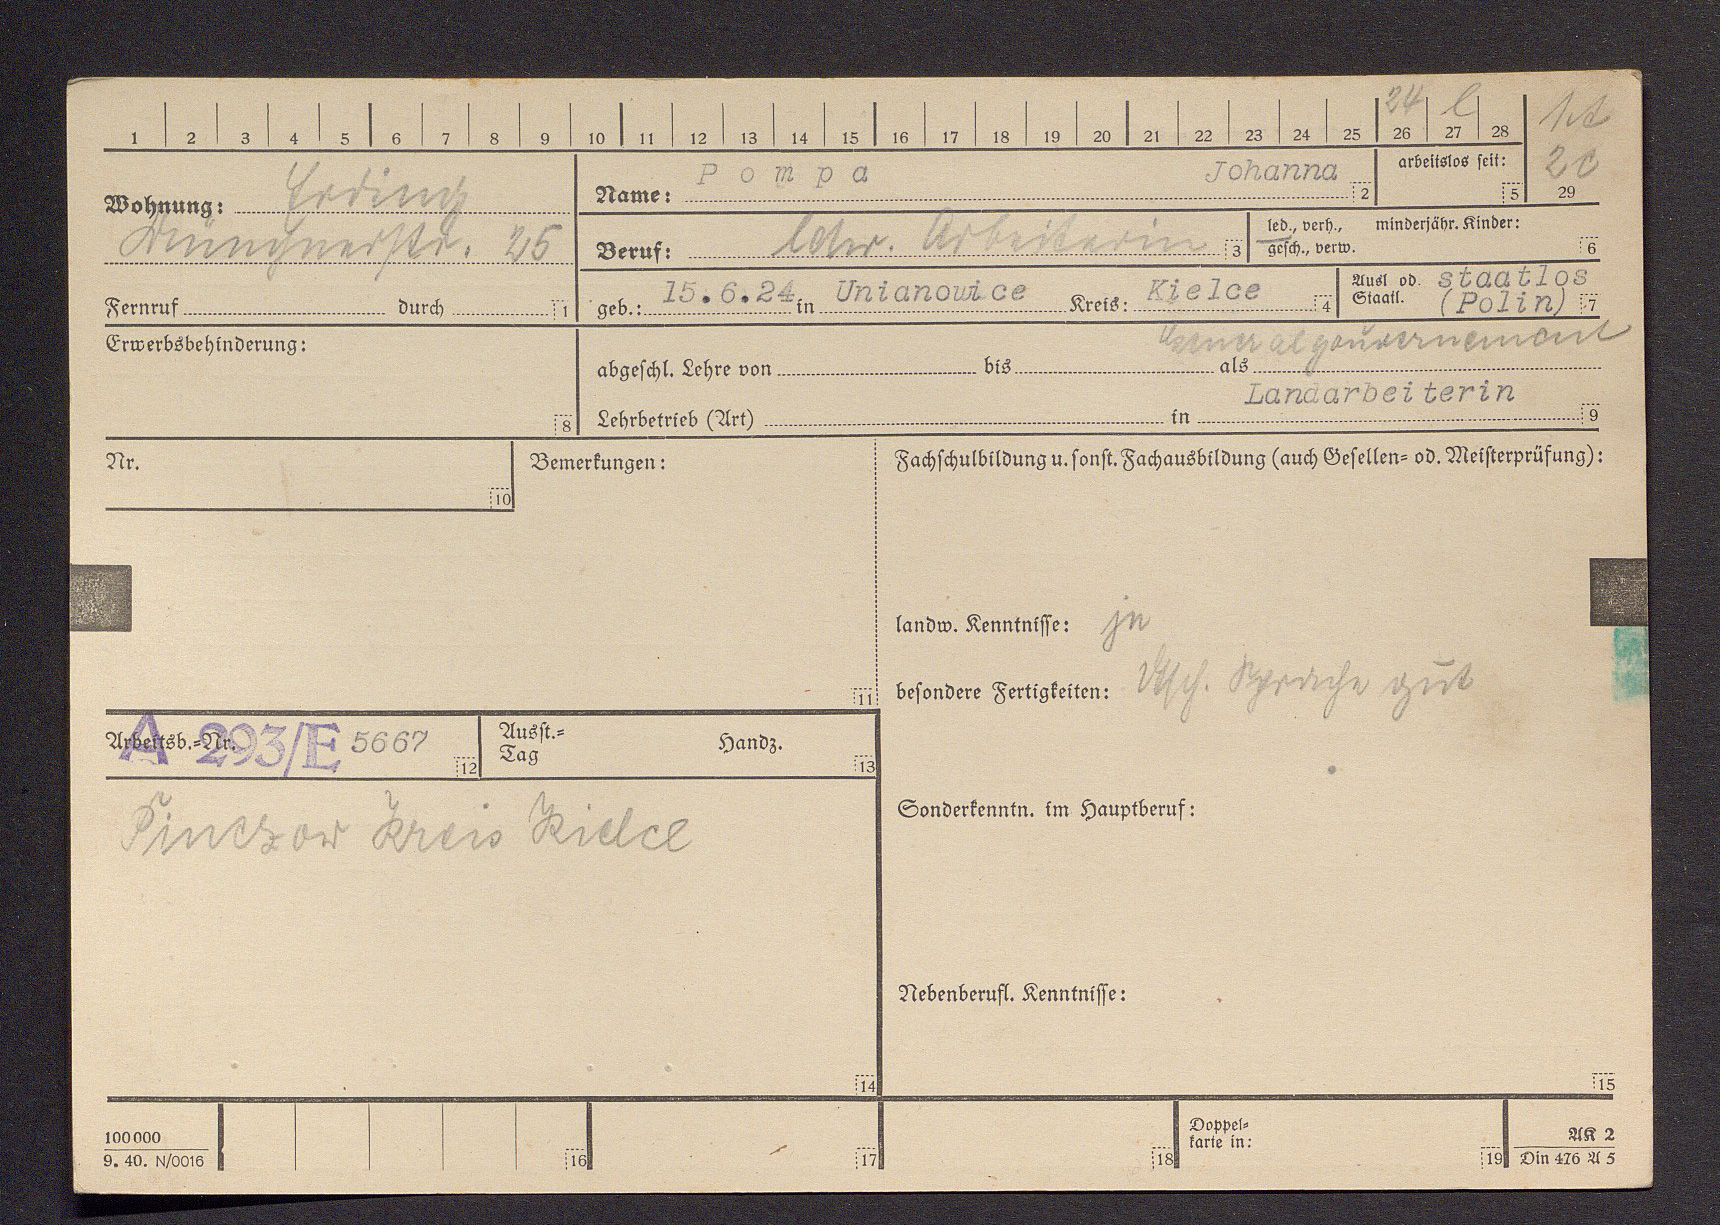 24 l 1t
1 2 3 4 5 6 7 8 9 10 11 12 13 14 15 16 17 18 19 20 21 22 23 24 25 26 27 28
Wohnung: Erding
Münchnerstr. 25
Fernruf durch 1
Name: Pompa Johanna 2
arbeitslos seit: 5
20
29
Beruf: ldw. Arbeiterin 3
led., verh., minderjähr. Kinder:
gesch., verw. 6
geb.: 15.6.24 in Unianowice Kreis: Kielce 4
Ausl od. staatlos
Staatl. (Polin) 7
Generalgouvernement
Erwerbsbehinderung:
8
abgeschl. Lehre von bis als
Landarbeiterin
Lehrbetrieb (Art) in 9
Nr.
10
Bemerkungen:
11
Fachschulbildung u. sonst. Fachausbildung (auch Gesellen= od. Meisterprüfung):
landw. Kenntnisse: ja
besondere Fertigkeiten: Dtsch. Sprache gut
Arbeitsb.=Nr. A 293/E 5667 12
Ausst.=
Tag Handz. 13
Pinczow Kreis Kielce
14
Sonderkenntn. im Hauptberuf:
Nebenberufl. Kenntnisse:
15
100 000
9. 40. N/0016
16
17
18
Doppel=
karte in: 19
AK 2
Din 476 A 5